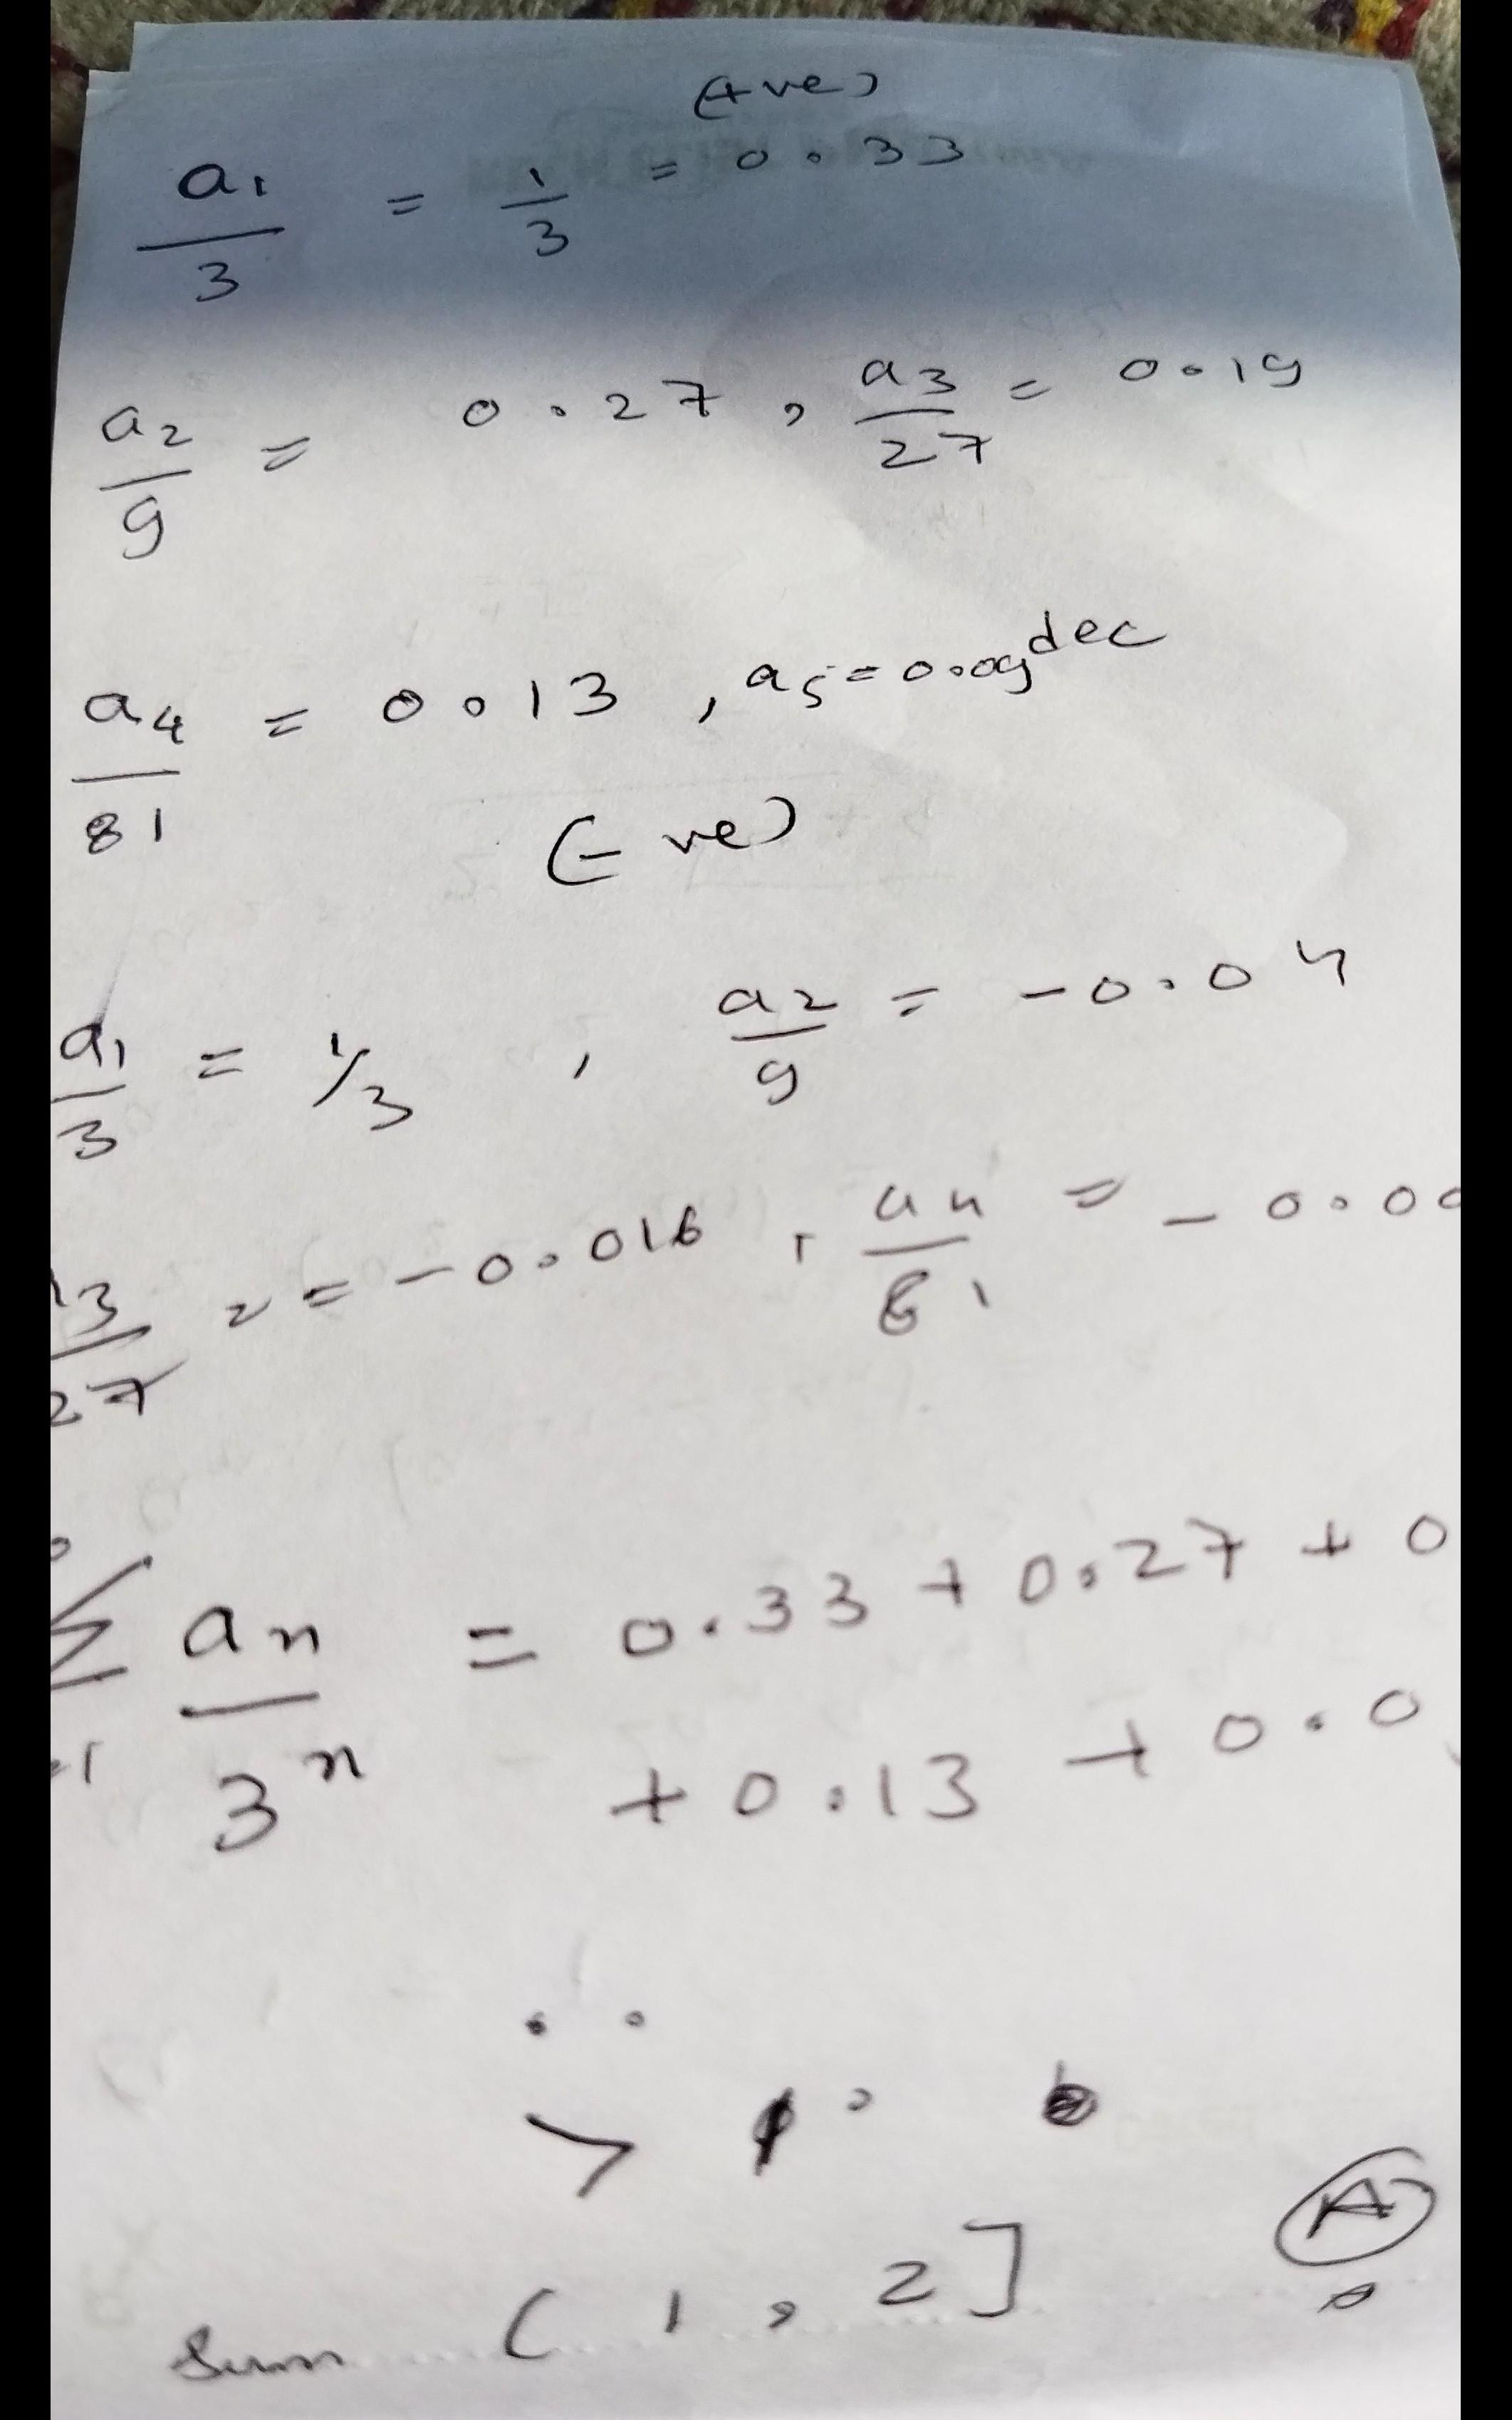 (+ve)
a₁/3 = 1/3 = 0.33
a₂/9 = 0.27, a₃/27 = 0.19
a₄/81 = 0.13, a₅ = 0.09 dec
(-ve)
a₁/3 = 1/3, a₂/9 = -0.04
3/27 = -0.016, a₄/81 = -0.00
Σ aₙ/3ⁿ = 0.33 + 0.27 + 0
+ 0.13 + 0.0
>
Sum (1, 2] A